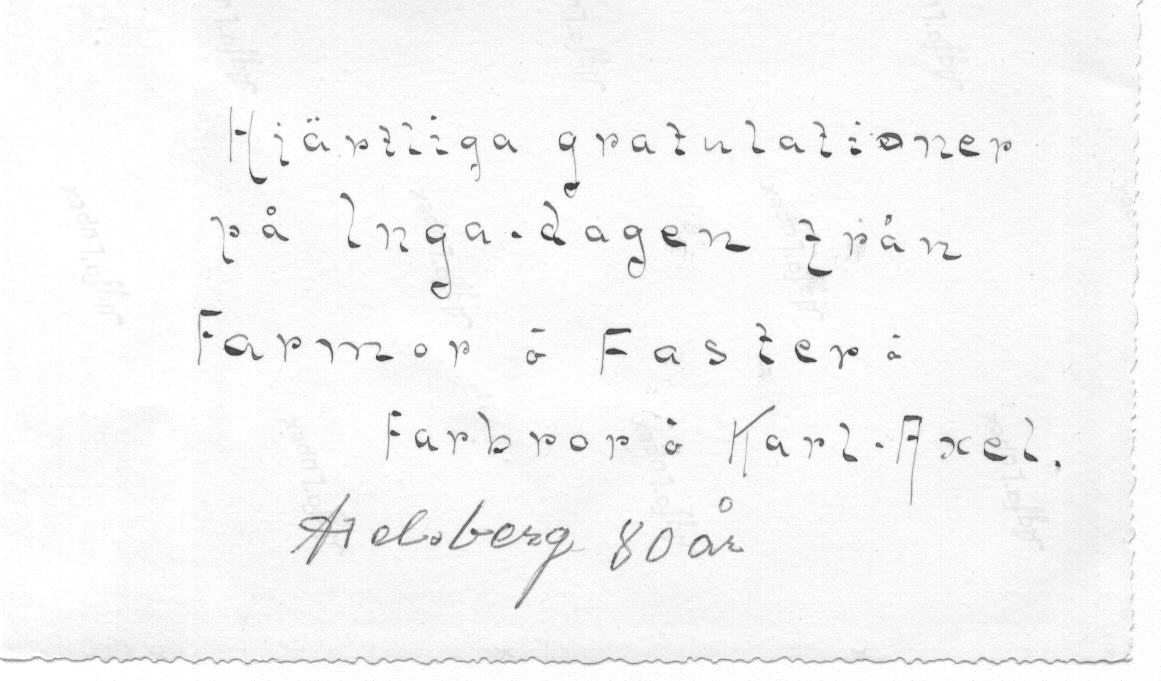 Hjärtliga gratulationer
på Inga-dagen från
Farmor å Faster å
Farbror å Karl-Axel.
80 år